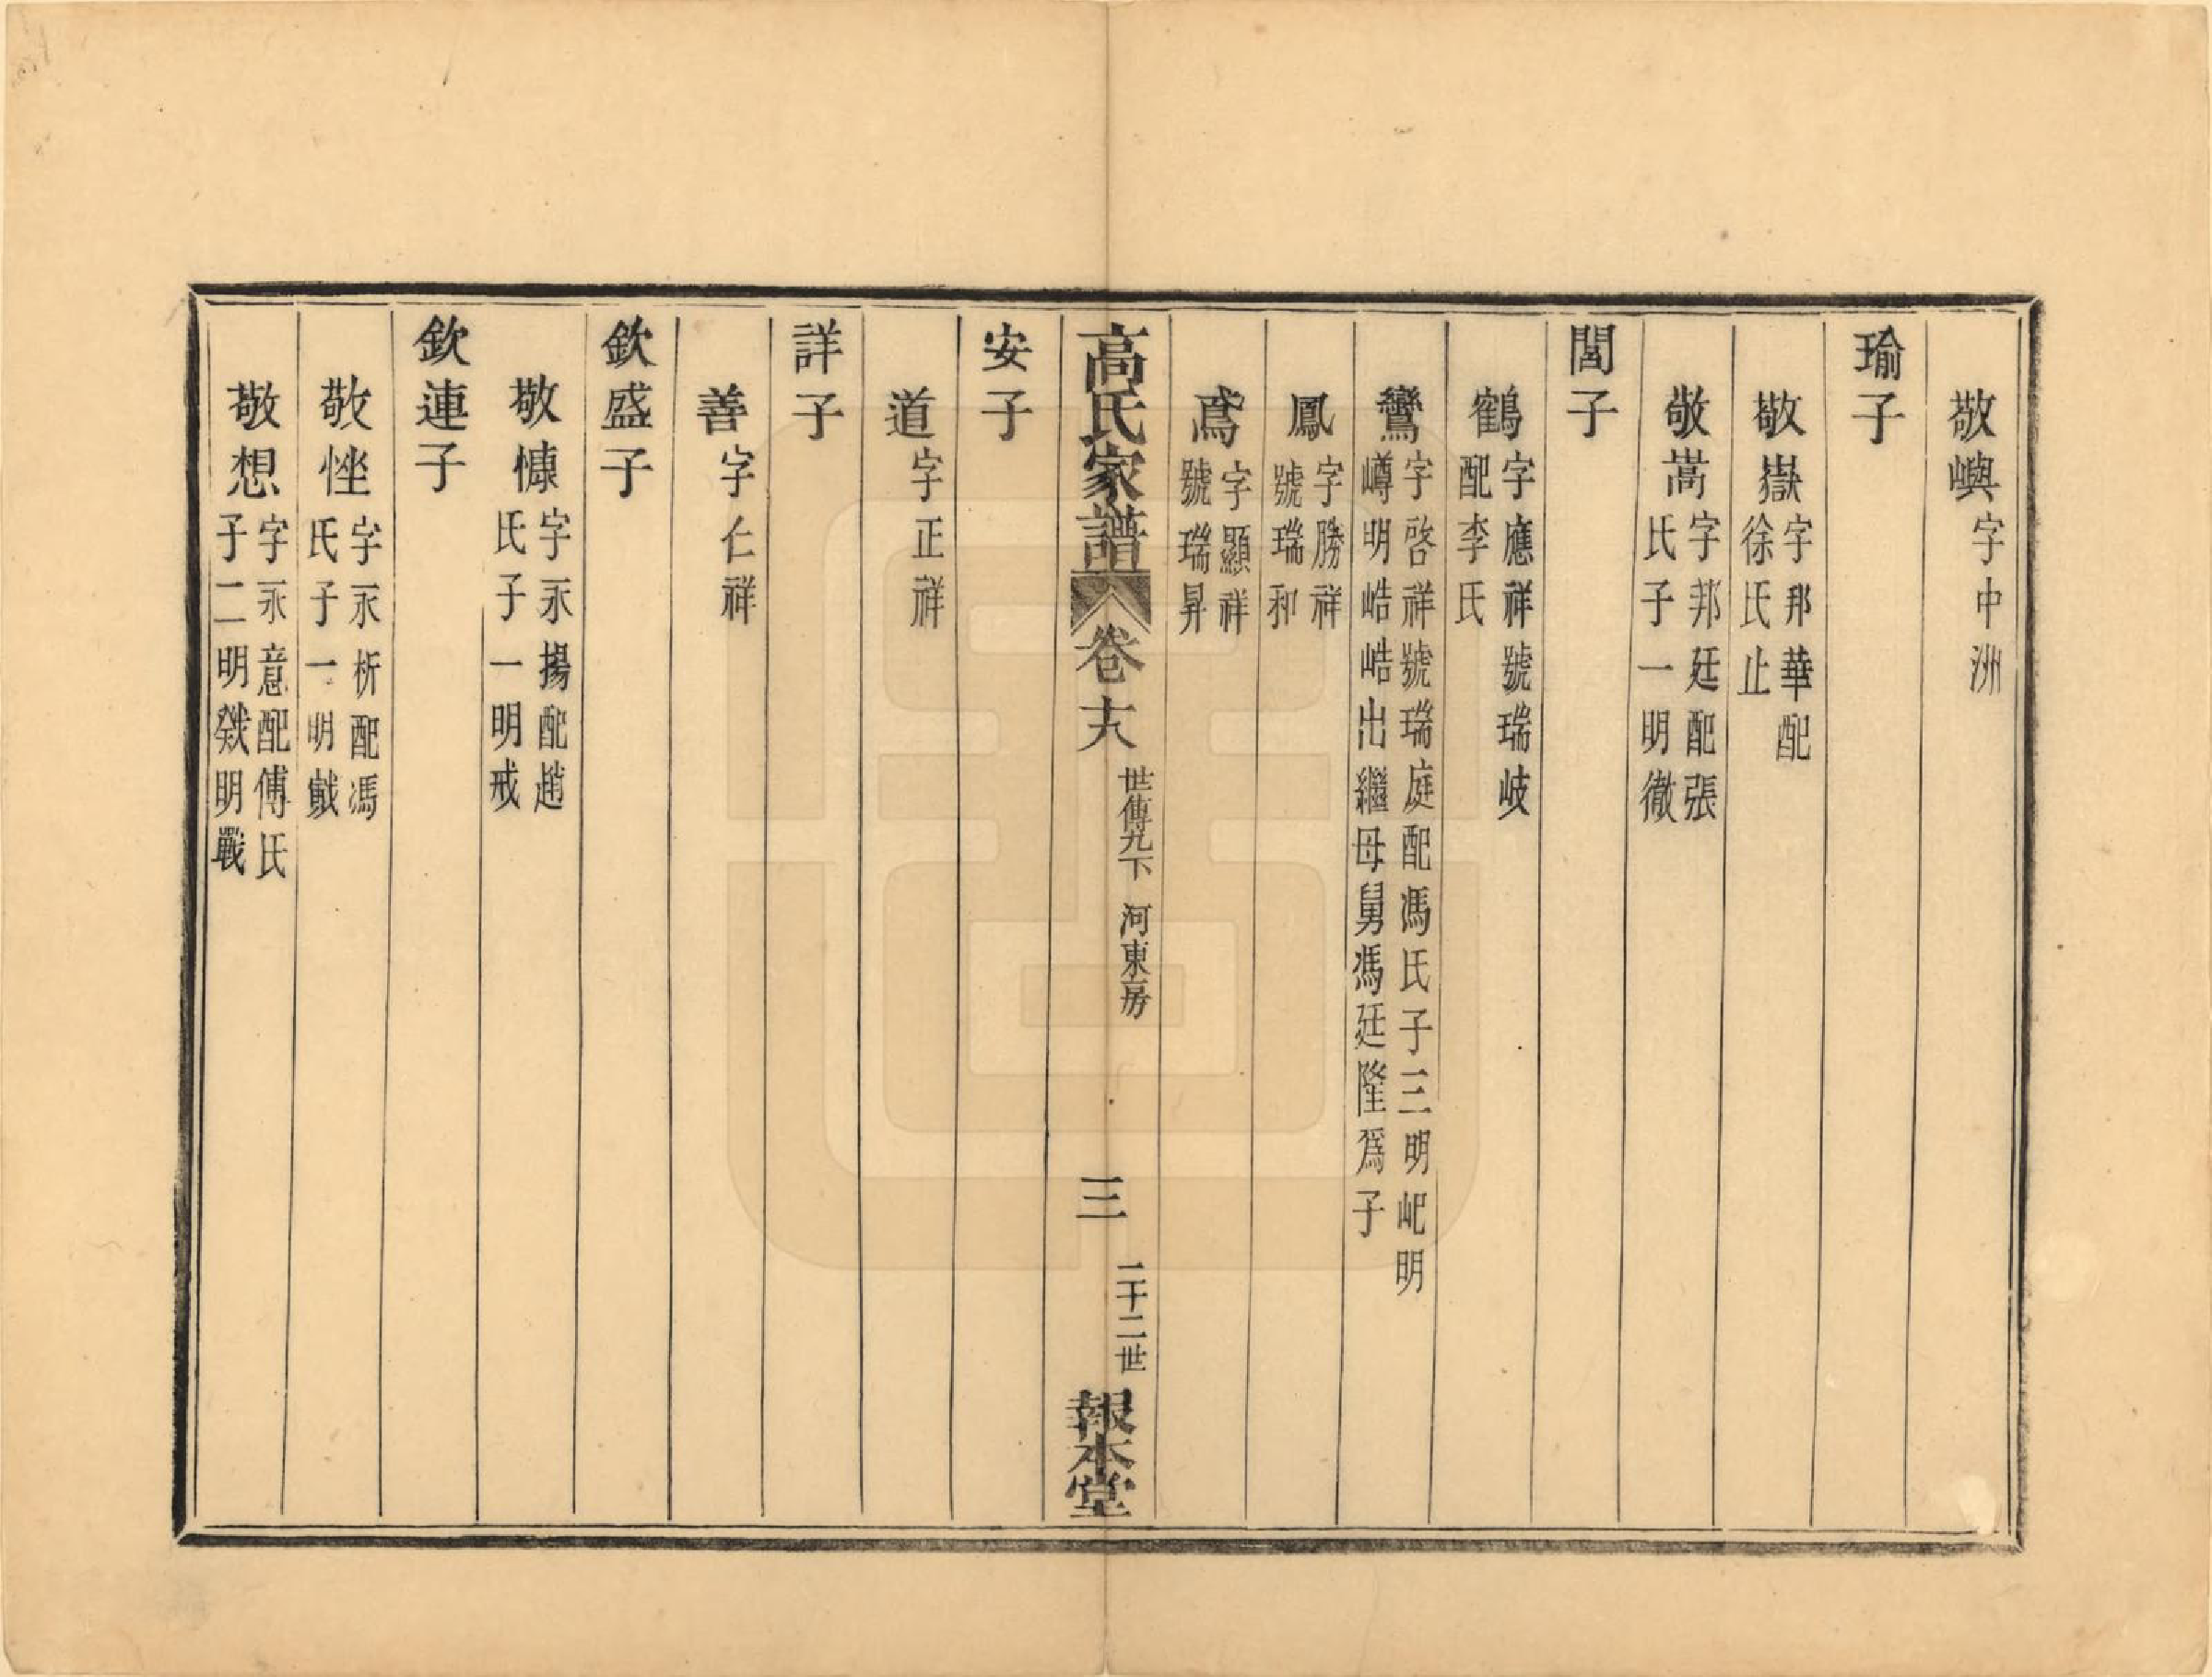 敬嶼字中洲
瑜子
敬嶽字邦華配徐氏止
敬嵩字邦廷配張氏子一明徹
閭子
鶴字應祥號瑞岐配李氏
鸞字啓祥號瑞庭配馮氏子三明屺明嶟明皓皓出繼母舅馮廷隆爲子
鳳字勝祥號瑞和
鳶字顯祥號瑞昇
高氏家譜
卷十六
世傳九下 河東房
三
二十二世
報本堂
安子
道字正祥
詳子
善字仁祥
欽盛子
敬慷字永揚配趙氏子一明戒
欽連子
敬㤞字永析配馮氏子一明戧
敬想字永意配傅氏子二明明戰